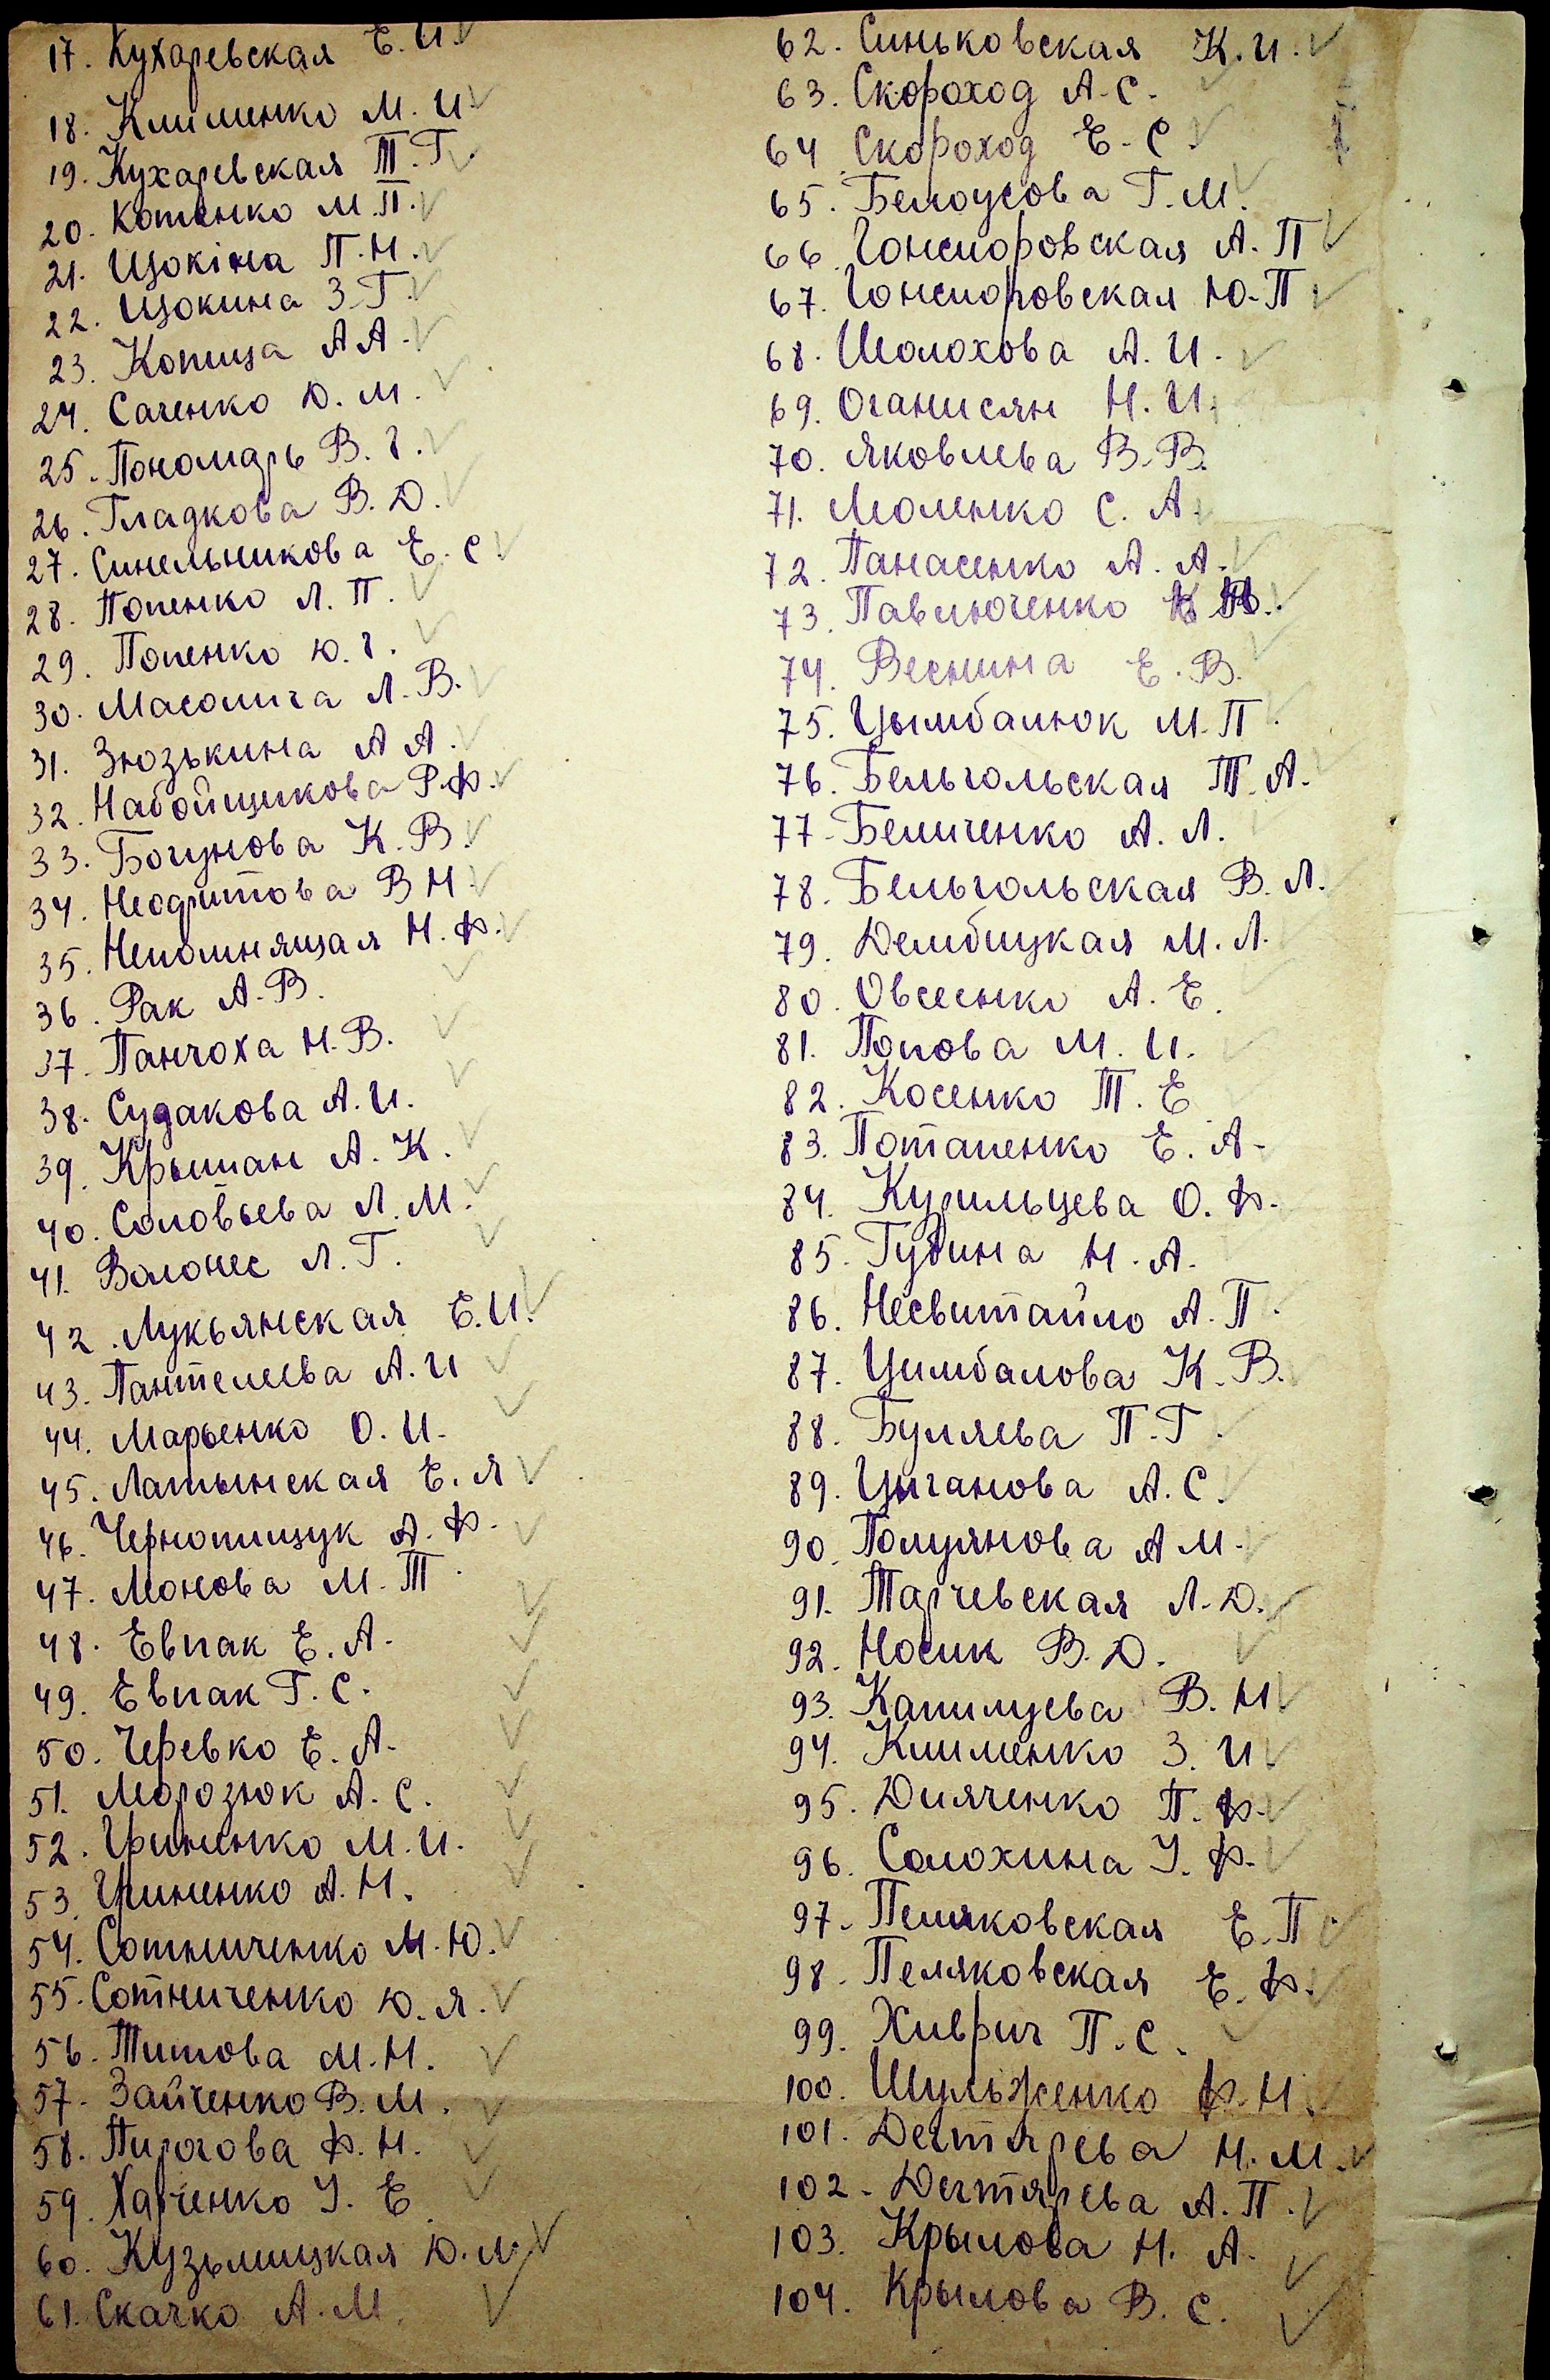 17. Кухаревская Е. И.
18. Клименко М. И.
19. Кухаревская Т. Г.
20. Котенко М. П.
21. Щокіна П. Н.
22. Щокина З. Г.
23. Копица А А.
24. Саченко Д. М.
25. Пономарь В. Г.
26. Гладкова В. Д.
27. Синельникова Е. С.
28. Попенко Л. П.
29. Попенко Ю. Г.
30. Масолига Л. В.
31. Зюзькина А А.
32. Набойщикова Р. Ф.
33. Богунова К. В.
34. Неофитова В Н.
35. Непомнящая Н. Ф.
36. Рак А. В.
37. Панчоха Н. В.
38. Судакова А. И.
39. Крыман А. К.
40. Соловьева Л. М.
41. Волонес Л. Г.
42. Лукьянская Е. И.
43. Пантелеева А. И
44. Марьенко О. И.
45. Латынская Е. Я
46. Чернопищук А. Ф.
47. Монова М. Т.
48. Евпак Е. А.
49. Евпак Г. С.
50. Черевко Е. А.
51. Морозюк А. С.
52. Гриненко М. И.
53. Гриненко А. Н.
54. Сотниченко М. Ю.
55. Сотниченко Ю. Я.
56. Титова М. Н.
57. Зайченко В. М.
58. Пирогова Ф. Н.
59. Харченко У. Е.
60. Кузьмицкая Ю. Л.
61. Скачко А. М.
62. Синьковская К. И.
63. Скороход А. С.
64 Скороход Е. С.
65. Белоусова Г. М.
66. Гонсиоровская А. П
67. Гонсиоровская Ю. П
68. Шолохова А. И.
69. Оганисян Н. И.
70. Яковлева В. В.
71. Моленко С. А.
72. Панасенко А. А.
73. Павлюченко
74. Веснина Е. В.
75. Цымбалюк М. П.
76. Бельгольская Т. А.
77. Величенко А. Л.
78. Бельгольская В. Л.
79. Дембицкая М. Л.
80. Овсеенко А. Е.
81. Попова М. И.
82. Косенко Т. Е
83. Потапенко Е. А.
84. Курильцева О. Ф.
85. Губина Н. А.
86. Несвитайло А. П.
87. Цимбалова К. В.
88. Буляева П. Г.
89. Цыганова А. С.
90. Полуянова А М.
91. Тарчевская Л. Д.
92. Носик В. Д.
93. Капилцева В. Н
94. Клименко З. И
95. Дияченко П. Ф.
96. Солохина У. Ф.
97. Пеляковская Е. П.
98. Пеляковская Е. Ф.
99. Хиврич П. С.
100. Шульженко Ф. Н.
101. Дегтярева Н. М.
102. Дегтярева А. П.
103. Крылова Н. А.
104. Крылова В. С.